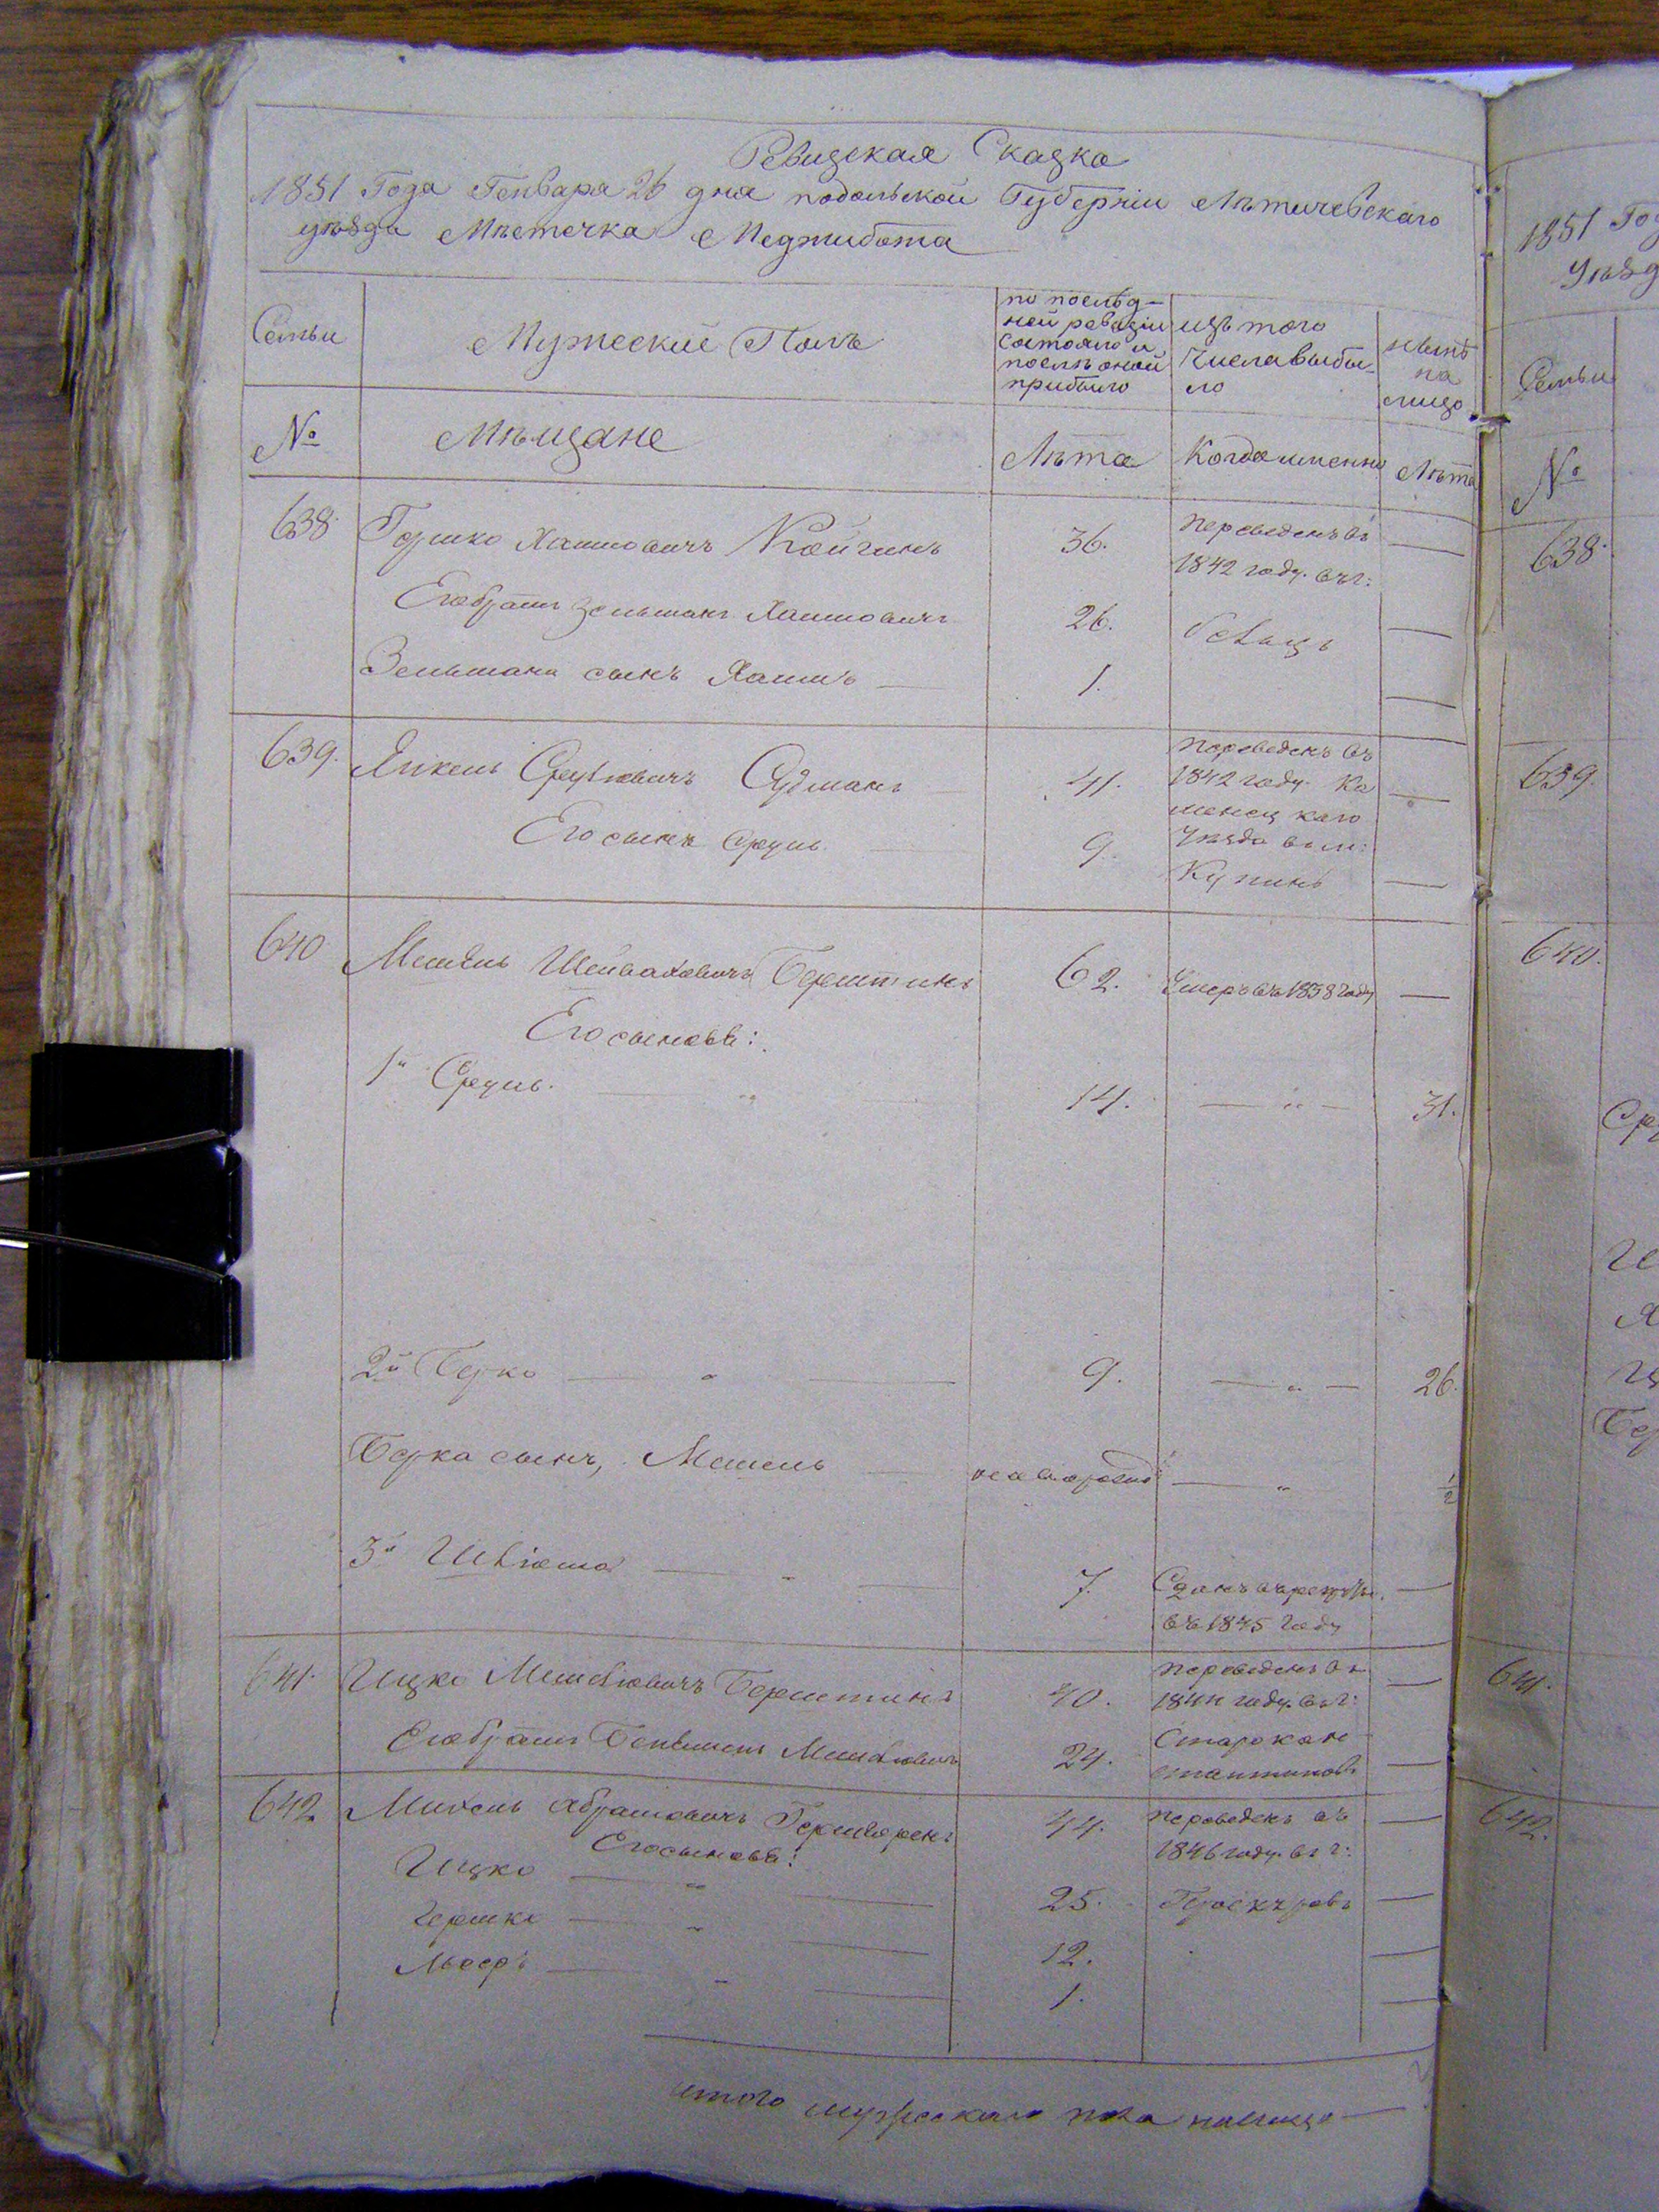 Ревизская Сказка
1851 Года Генваря 26 дня подольской Губерніи Лѣтичевскаго
уѣзда Мѣстечка Меджибожа
Семьи
Мужеский Полъ
по послѣд-
ней ревизіи
состояло и
послѣ оной
прибыло
изъ того
числа выбы-
ло
нынѣ
на
лицо
№
Мѣщане
Лѣта
Когда именно
Лѣта
638
Гершко Хаимовичъ Койгинъ
36.
переведенъ въ
1842 году. въ г:
Его братъ Зельманъ Хаимовичъ
26.
Зельмана сынъ Хаимъ
1.
639.
Янкель Срулiовичъ Судманъ
41.
переведенъ въ
1842 году. Ка
менец каго
Его сынъ Сруль
9.
уѣзда въ м:
Купинъ
640
Мошель Берштинъ
62.
Умеръ въ 1838 году
Его сыновья:
1й Сруль.
14.
31.
2й Берко
9.
26.
Берка сынъ, Мошель
новорожд
1/2
3й
7.
Сданъ въ рекруты.
въ 1845 году
641.
Ицко Берштинъ
40.
переведенъ въ
1844 году. въ г:
Его братъ
24.
Старокон
стантиновъ
642
Михель Абрамовичъ
44.
переведенъ въ
1846 году. въ г:
Его сыновья:
Ицко
25.
Проскуровъ
Гершко
12.
Лейзеръ
1.
итого мужескаго пола налицо
1851 Го
Уѣзд
Семьи
№
638.
639.
640.
Ср
Бер
641.
642.